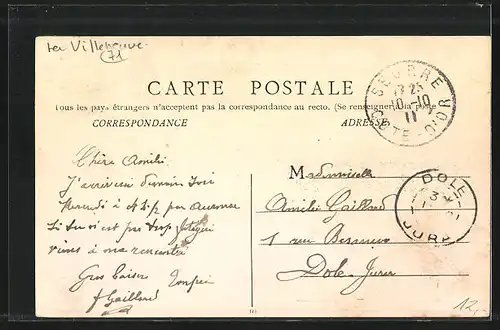 Villeneuve
71
CARTE POSTALE
Tous les pays étrangers n'acceptent pas la correspondance au recto. (Se renseigner à la poste
CORRESPONDANCE
ADRESSE
SEURRE
13 25
10-10
11
COTE-D'OR
Chère Amélie
J'arriverai demain soir
Mercredi à
Si tu n'est pas trop fatiguée
viens à ma rencontre
Gros baisers
Gaillard
Mademoiselle
Amélie Gaillard
1 rue
Dole-Jura
DOLE
JURA
12,-